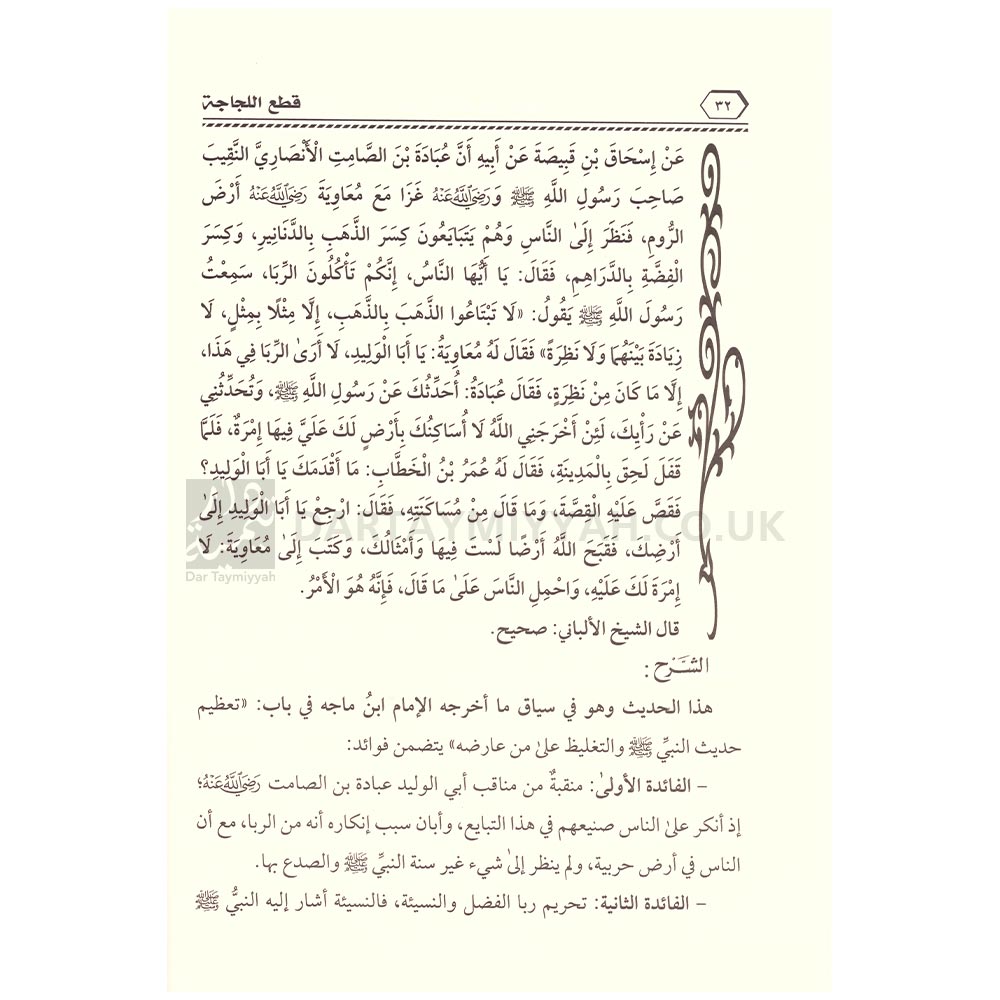 ٣٢
قطع اللجاجة
عَنْ إِسْحَاقَ بْنِ قَبِيصَةَ عَنْ أَبِيهِ أَنَّ عُبَادَةَ بْنَ الصَّامِتِ الْأَنْصَارِيَّ النَّقِيبَ
صَاحِبَ رَسُولِ اللَّهِ ﷺ وَرَضِيَ اللَّهُ عَنْهُ غَزَا مَعَ مُعَاوِيَةَ رَضِيَ اللَّهُ عَنْهُ أَرْضَ
الرُّومِ، فَنَظَرَ إِلَىٰ النَّاسِ وَهُمْ يَتَبَايَعُونَ كِسَرَ الذَّهَبِ بِالدَّنَانِيرِ، وَكِسَرَ
الْفِضَّةِ بِالدَّرَاهِمِ، فَقَالَ: يَا أَيُّهَا النَّاسُ، إِنَّكُمْ تَأْكُلُونَ الرِّبَا، سَمِعْتُ
رَسُولَ اللَّهِ ﷺ يَقُولُ: «لَا تَبْتَاعُوا الذَّهَبَ بِالذَّهَبِ، إِلَّا مِثْلًا بِمِثْلٍ، لَا
زِيَادَةَ بَيْنَهُمَا وَلَا نَظِرَةً» فَقَالَ لَهُ مُعَاوِيَةُ: يَا أَبَا الْوَلِيدِ، لَا أَرَىٰ الرِّبَا فِي هَذَا،
إِلَّا مَا كَانَ مِنْ نَظِرَةٍ، فَقَالَ عُبَادَةُ: أُحَدِّثُكَ عَنْ رَسُولِ اللَّهِ ﷺ، وَتُحَدِّثُنِي
عَنْ رَأْيِكَ، لَئِنْ أَخْرَجَنِي اللَّهُ لَا أُسَاكِنُكَ بِأَرْضٍ لَكَ عَلَيَّ فِيهَا إِمْرَةٌ، فَلَمَّا
قَفَلَ لَحِقَ بِالْمَدِينَةِ، فَقَالَ لَهُ عُمَرُ بْنُ الْخَطَّابِ: مَا أَقْدَمَكَ يَا أَبَا الْوَلِيدِ؟
فَقَصَّ عَلَيْهِ الْقِصَّةَ، وَمَا قَالَ مِنْ مُسَاكَنَتِهِ، فَقَالَ: ارْجِعْ يَا أَبَا الْوَلِيدِ إِلَىٰ
DARTAYMIYYAH.CO.UK
أَرْضِكَ، فَقَبَحَ اللَّهُ أَرْضًا لَسْتَ فِيهَا وَأَمْثَالُكَ، وَكَتَبَ إِلَىٰ مُعَاوِيَةَ: لَا
Dar Taymiyyah
إِمْرَةَ لَكَ عَلَيْهِ، وَاحْمِلِ النَّاسَ عَلَىٰ مَا قَالَ، فَإِنَّهُ هُوَ الْأَمْرُ.
قال الشيخ الألباني: صحيح.
الشَّرْح:
هذا الحديث وهو في سياق ما أخرجه الإمام ابنُ ماجه في باب: «تعظيم
حديث النبيِّ ﷺ والتغليظ علىٰ من عارضه» يتضمن فوائد:
– الفائدة الأولىٰ: منقبةٌ من مناقب أبي الوليد عبادة بن الصامت رَضِيَ اللَّهُ عَنْهُ؛
إذ أنكر علىٰ الناس صنيعهم في هذا التبايع، وأبان سبب إنكاره أنه من الربا، مع أن
الناس في أرض حربية، ولم ينظر إلىٰ شيء غير سنة النبيِّ ﷺ والصدع بها.
– الفائدة الثانية: تحريم ربا الفضل والنسيئة، فالنسيئة أشار إليه النبيُّ ﷺ